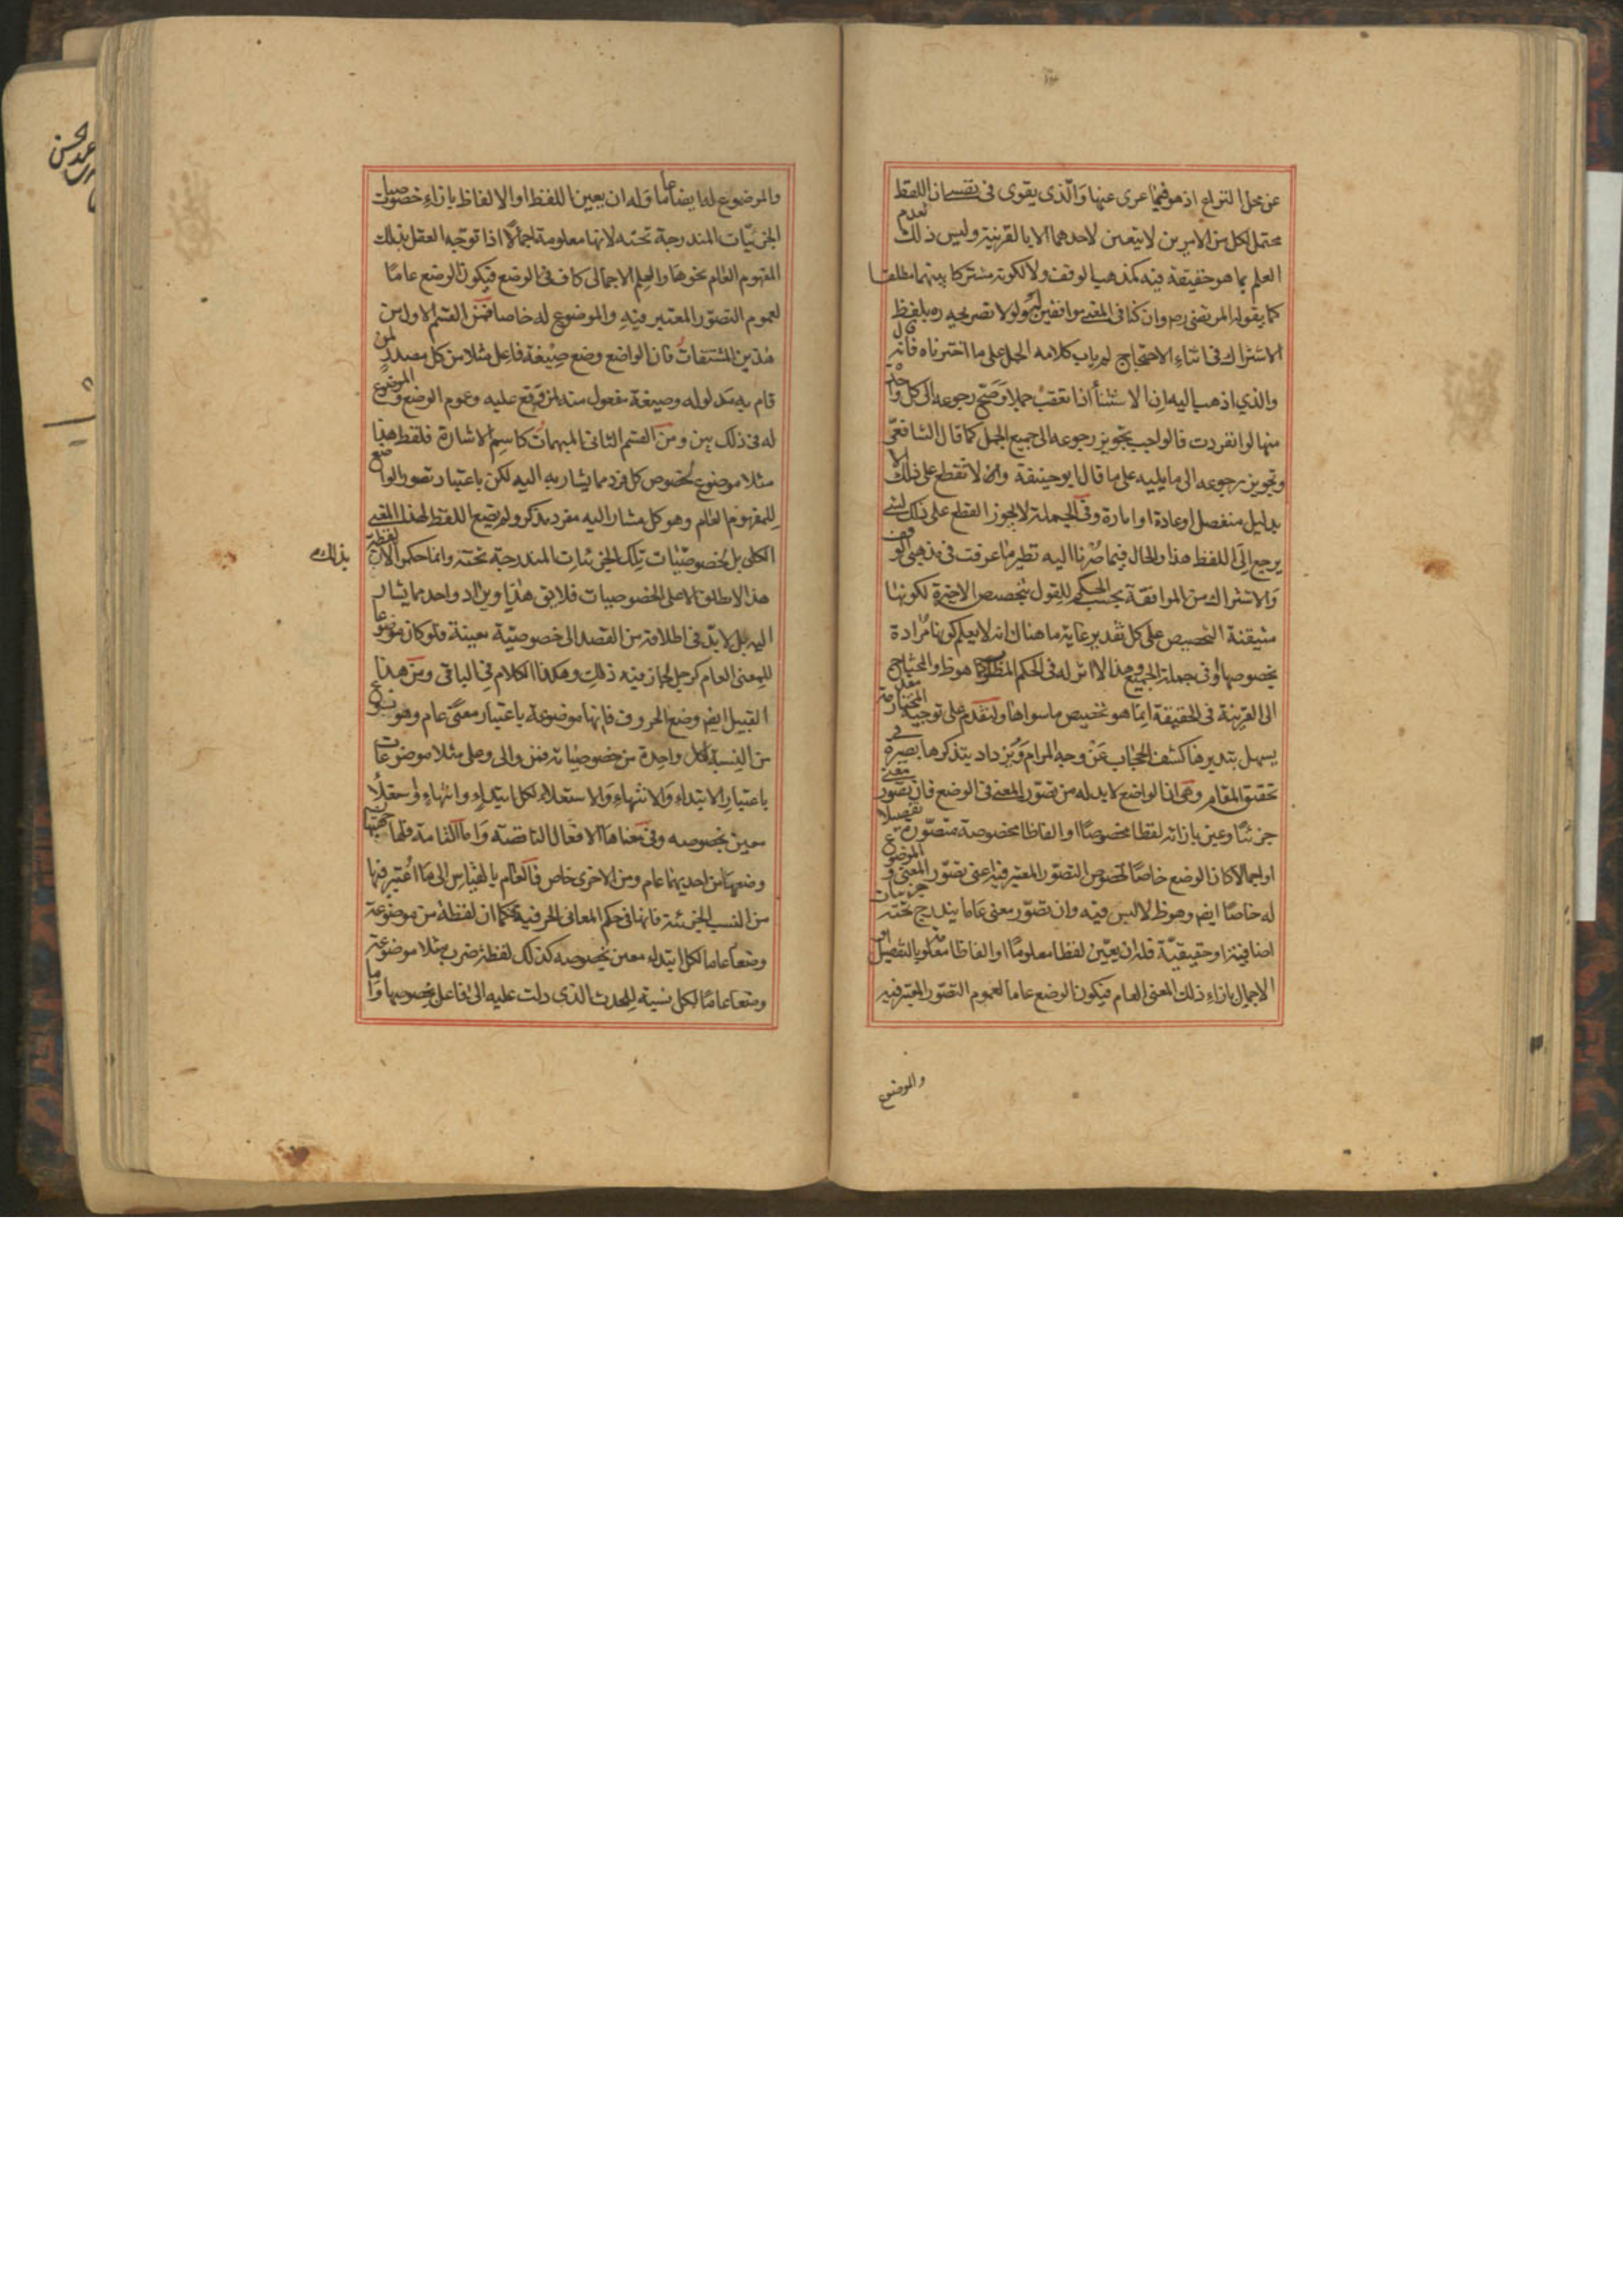 عن محل النزاع اذ هو فيما عرى عنها والذي يقوى في نفسي ان اللفظ
محتمل لكل من الامرين لا يتعين لاحدهما الا بالقرينة وليس ذلك لعدم
العلم بما هو حقيقة فيه كمذهب الوقف ولا لكونه مشتركا بينهما مطلقا
كما يقوله المرتضى ره وان كنا في المعنى موافقين له ولولا تصريحه ره بلفظ
الاشتراك في اثناء الاحتجاج لم ياب كلامه الحمل على ما اخترناه فانه قال
والذي اذهب اليه ان الاستثناء اذا تعقب جملا وصح رجوعه الى كل واحدة
منها لو انفردت فالواجب تجويز رجوعه الى جميع الجمل كما قال الشافعي
وتجويز رجوعه الى ما يليه على ما قال ابو حنيفة وان لا نقطع على ذلك الا
بدليل منفصل او عادة او امارة وفي الجملة لا يجوز القطع على ذلك لشيء
يرجع الى اللفظ هذا والحال فيما صرنا اليه نظير ما عرفت في مذهبي الوقف
والاشتراك من الموافقة بحسب الحكم للقول بتخصيص الاخيرة لكونها
متيقنة التخصيص على كل تقدير غاية ما هناك انه لا يعلم كونها مرادة
بخصوصها او في جملة الجميع وهذا لا اثر له في الحكم المطلوب كما هو ظ والمحتاج
الى القرينة في الحقيقة انما هو تخصيص ما سواها ولنقدم على توجيه المختار مقدمة
يسهل بتدبرها كشف الحجاب عن وجه المرام ويزداد بتذكرها بصيرة في
تحقيق المقام وهي ان الواضع لا بد له من تصور المعنى في الوضع فان تصور معنى
جزئيا وعين بازائه لفظا مخصوصا او الفاظا مخصوصة متصورة تفصيلا
او اجمالا كان الوضع خاصا لخصوص التصور المعتبر فيه اعني تصور المعنى والموضوع
له خاصا ايض وهو ظ لا لبس فيه وان تصور معنى عاما يندرج تحته جزئيات
اضافية او حقيقية فله ان يعين لفظا معلوما او الفاظا معلومة بالتفصيل او
الاجمال بازاء ذلك المعنى العام فيكون الوضع عاما لعموم التصور المعتبر فيه
والموضوع
والموضوع له ايضا عاما وله ان يعين اللفظ او الالفاظ بازاء خصوصيات
الجزئيات المندرجة تحته لانها معلومة اجمالا اذا توجه العقل بذلك
المفهوم العام نحوها والعلم الاجمالي كاف في الوضع فيكون الوضع عاما
لعموم التصور المعتبر فيه والموضوع له خاصا فمن القسم الاول من
هذين المشتقات فان الواضع وضع صيغة فاعل مثلا من كل مصدر لمن
قام به مدلوله وصيغة مفعول منه لمن وقع عليه وعموم الوضع والموضوع
له في ذلك بين ومن القسم الثاني المبهمات كاسم الاشارة فلفظ هذا
مثلا موضوع لخصوص كل فرد مما يشار به اليه لكن باعتبار تصور الواضع
للمفهوم العام وهو كل مشار اليه مفرد مذكر ولم يضع اللفظ لهذا المعنى
الكلي بل لخصوصيات تلك الجزئيات المندرجة تحته وانما حكموا الان لفظة
بذلك
هذا لا يطلق الا على الخصوصيات فلا يق هذا ويراد واحد مما يشار
اليه بل لا بد في اطلاقه من القصد الى خصوصية معينة فلو كان موضوعا
للمعنى العام كرجل لجاز فيه ذلك وهكذا الكلام في الباقي ومن هذا
القبيل ايض وضع الحروف فانها موضوعة باعتبار معنى عام وهو نوع
من النسبة لكل واحدة من خصوصياته فمن والى وعلى مثلا موضوعات
باعتبار الابتداء والانتهاء والاستعلاء لكل ابتداء وانتهاء واستعلاء
معين بخصوصه وفي معناها الافعال الناقصة واما التامة فلها جهتان
وضعها من احديهما عام ومن الاخرى خاص فالعام بالقياس الى ما اعتبر فيها
من النسب الجزئية فانها في حكم المعاني الحرفية فكما ان لفظة من موضوعة
وضعا عاما لكل ابتداء معين بخصوصه كذلك لفظة ضرب مثلا موضوعة
وضعا عاما لكل نسبة للحدث الذي دلت عليه الى فاعل بخصوصها واما